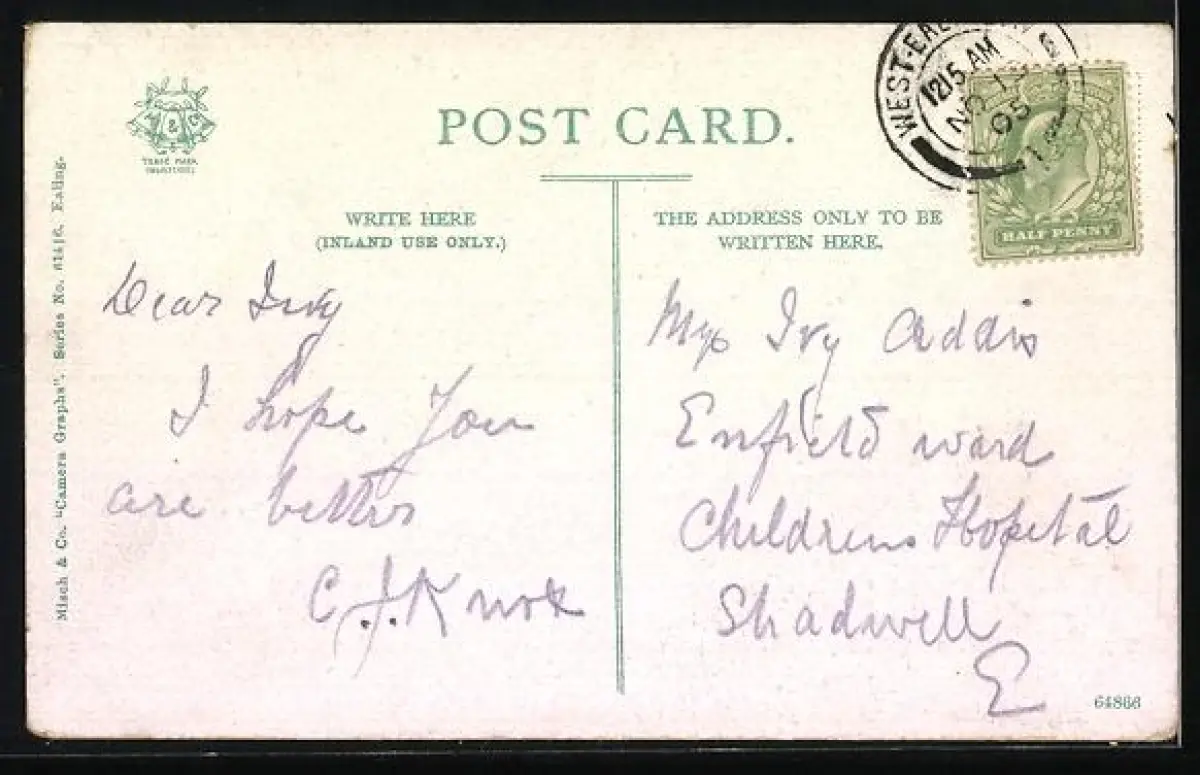 POST CARD.
TRADE MARK
M & C
WRITE HERE
(INLAND USE ONLY.)
THE ADDRESS ONLY TO BE
WRITTEN HERE.
WEST-EAL
1215 AM
NO 1
05
HALF PENNY
Misch & Co. "Camera Graphs". Series No. 614/6. Ealing.
Dear Ivy
I hope You
are better
C. J. Knox
Miss Ivy Addis
Enfield ward
Childrens Hospital
Shadwell
E
64866